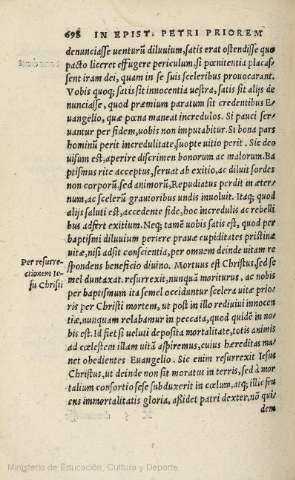 698 IN EPIST. PETRI PRIOREM
denunciasse venturū diluvium, satis erat ostendisse quo
pacto liceret effugere periculum, si pœnitentia placas
sent iram dei, quam in se suis sceleribus provocarant.
Vobis quoq; satis sit innocentia vestra, satis sit alijs de
nunciasse, quod præmium paratum sit credentibus E
vangelio, quæ pœna maneat incredulos. Si pauci ser
vantur per fidem, vobis non imputabitur. Si bona pars
hominū perit incredulitate, suopte vitio perit. Sic deo
visum est, aperire discrimen bonorum ac malorum. Ba
ptismus rite acceptus, servat ab exitio, ac diluit sordes
non corporū, sed animorū, Repudiatus perdit in æter-
num, ac scelerū gravioribus undis involvit. Itaq; quod
alijs saluti est, accedente fide, hoc incredulis ac rebelli
bus adfert exitium. Neq; tamē vobis satis est, quod per
baptismi diluvium periere pravæ cupiditates pristinæ
vitæ, nisi adsit conscientia, per omnem deinde vitam re
spondens beneficio divino. Mortuus est Christus, sed se
Per resurre-
ctionem Ie-
su Christi
mel duntaxat. resurrexit, nunquā moriturus, ac nobis
per baptismum ita semel occiduntur scelera vitæ prio-
ris per Christi mortem, ut post in illo redivivi innocen
tiæ, nunquam relabamur in peccata, quod quidē in no
bis est. Id fiet si veluti deposita mortalitate, totis animis
ad cœlestem illam vitā aspiremus, cuius hæreditas ma-
net obedientes Euangelio. Sic enim resurrexit Iesus
Christus, ut deinde non sit moratus in terris, sed à mor
talium consortio sese subduxerit in cœlum, atq; illic fru
ens immortalitatis gloria, assidet patri dexter, nō qui
dem
Ministerio de Educación, Cultura y Deporte